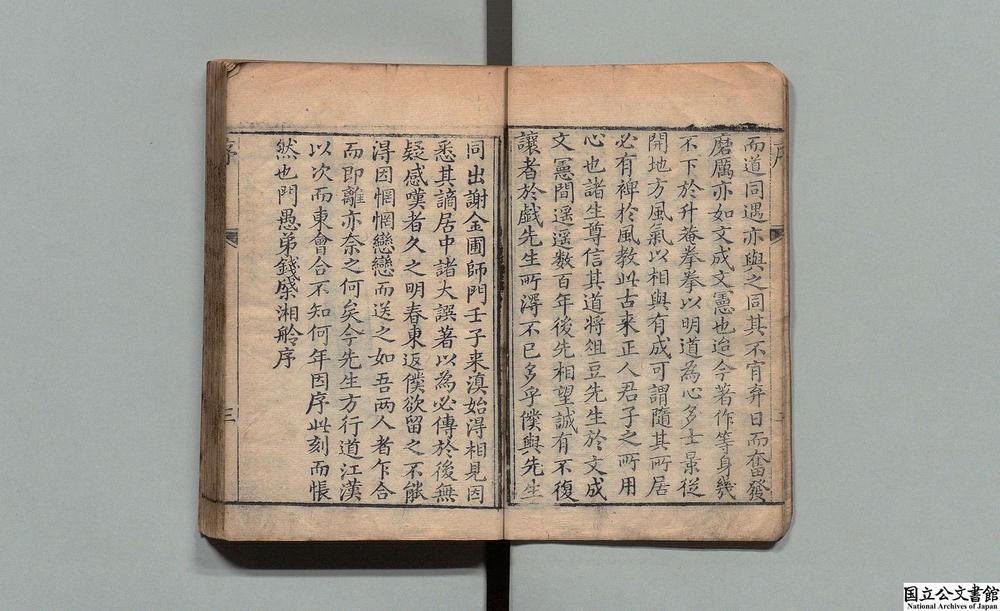 而道同遇亦與之同其不肓弃日而奮發
磨厲亦如文成文憲也迨今著作等身幾
不下於升菴拳拳以明道為心多士景從
開地方風氣以相與有成可謂隨其所居
必有裨於風教此古来正人君子之所用
心也諸生尊信其道將俎豆先生於文成
文憲間遥遥数百年後先相望誠有不復
讓者於戯先生所淂不已多乎僕與先生
同出謝金圃師門壬子来滇始得相見因
悉其謫居中諸大譔著以為必傳於後無
疑感嘆者久之明春東返僕欲留之不能
得因惘惘戀戀而送之如吾两人者乍合
而即離亦奈之何矣今先生方行道江漢
以次而東會合不知何年因序此刻而悵
然也門愚弟錢棨湘舲序
序
三
国立公文書館
National Archives of Japan